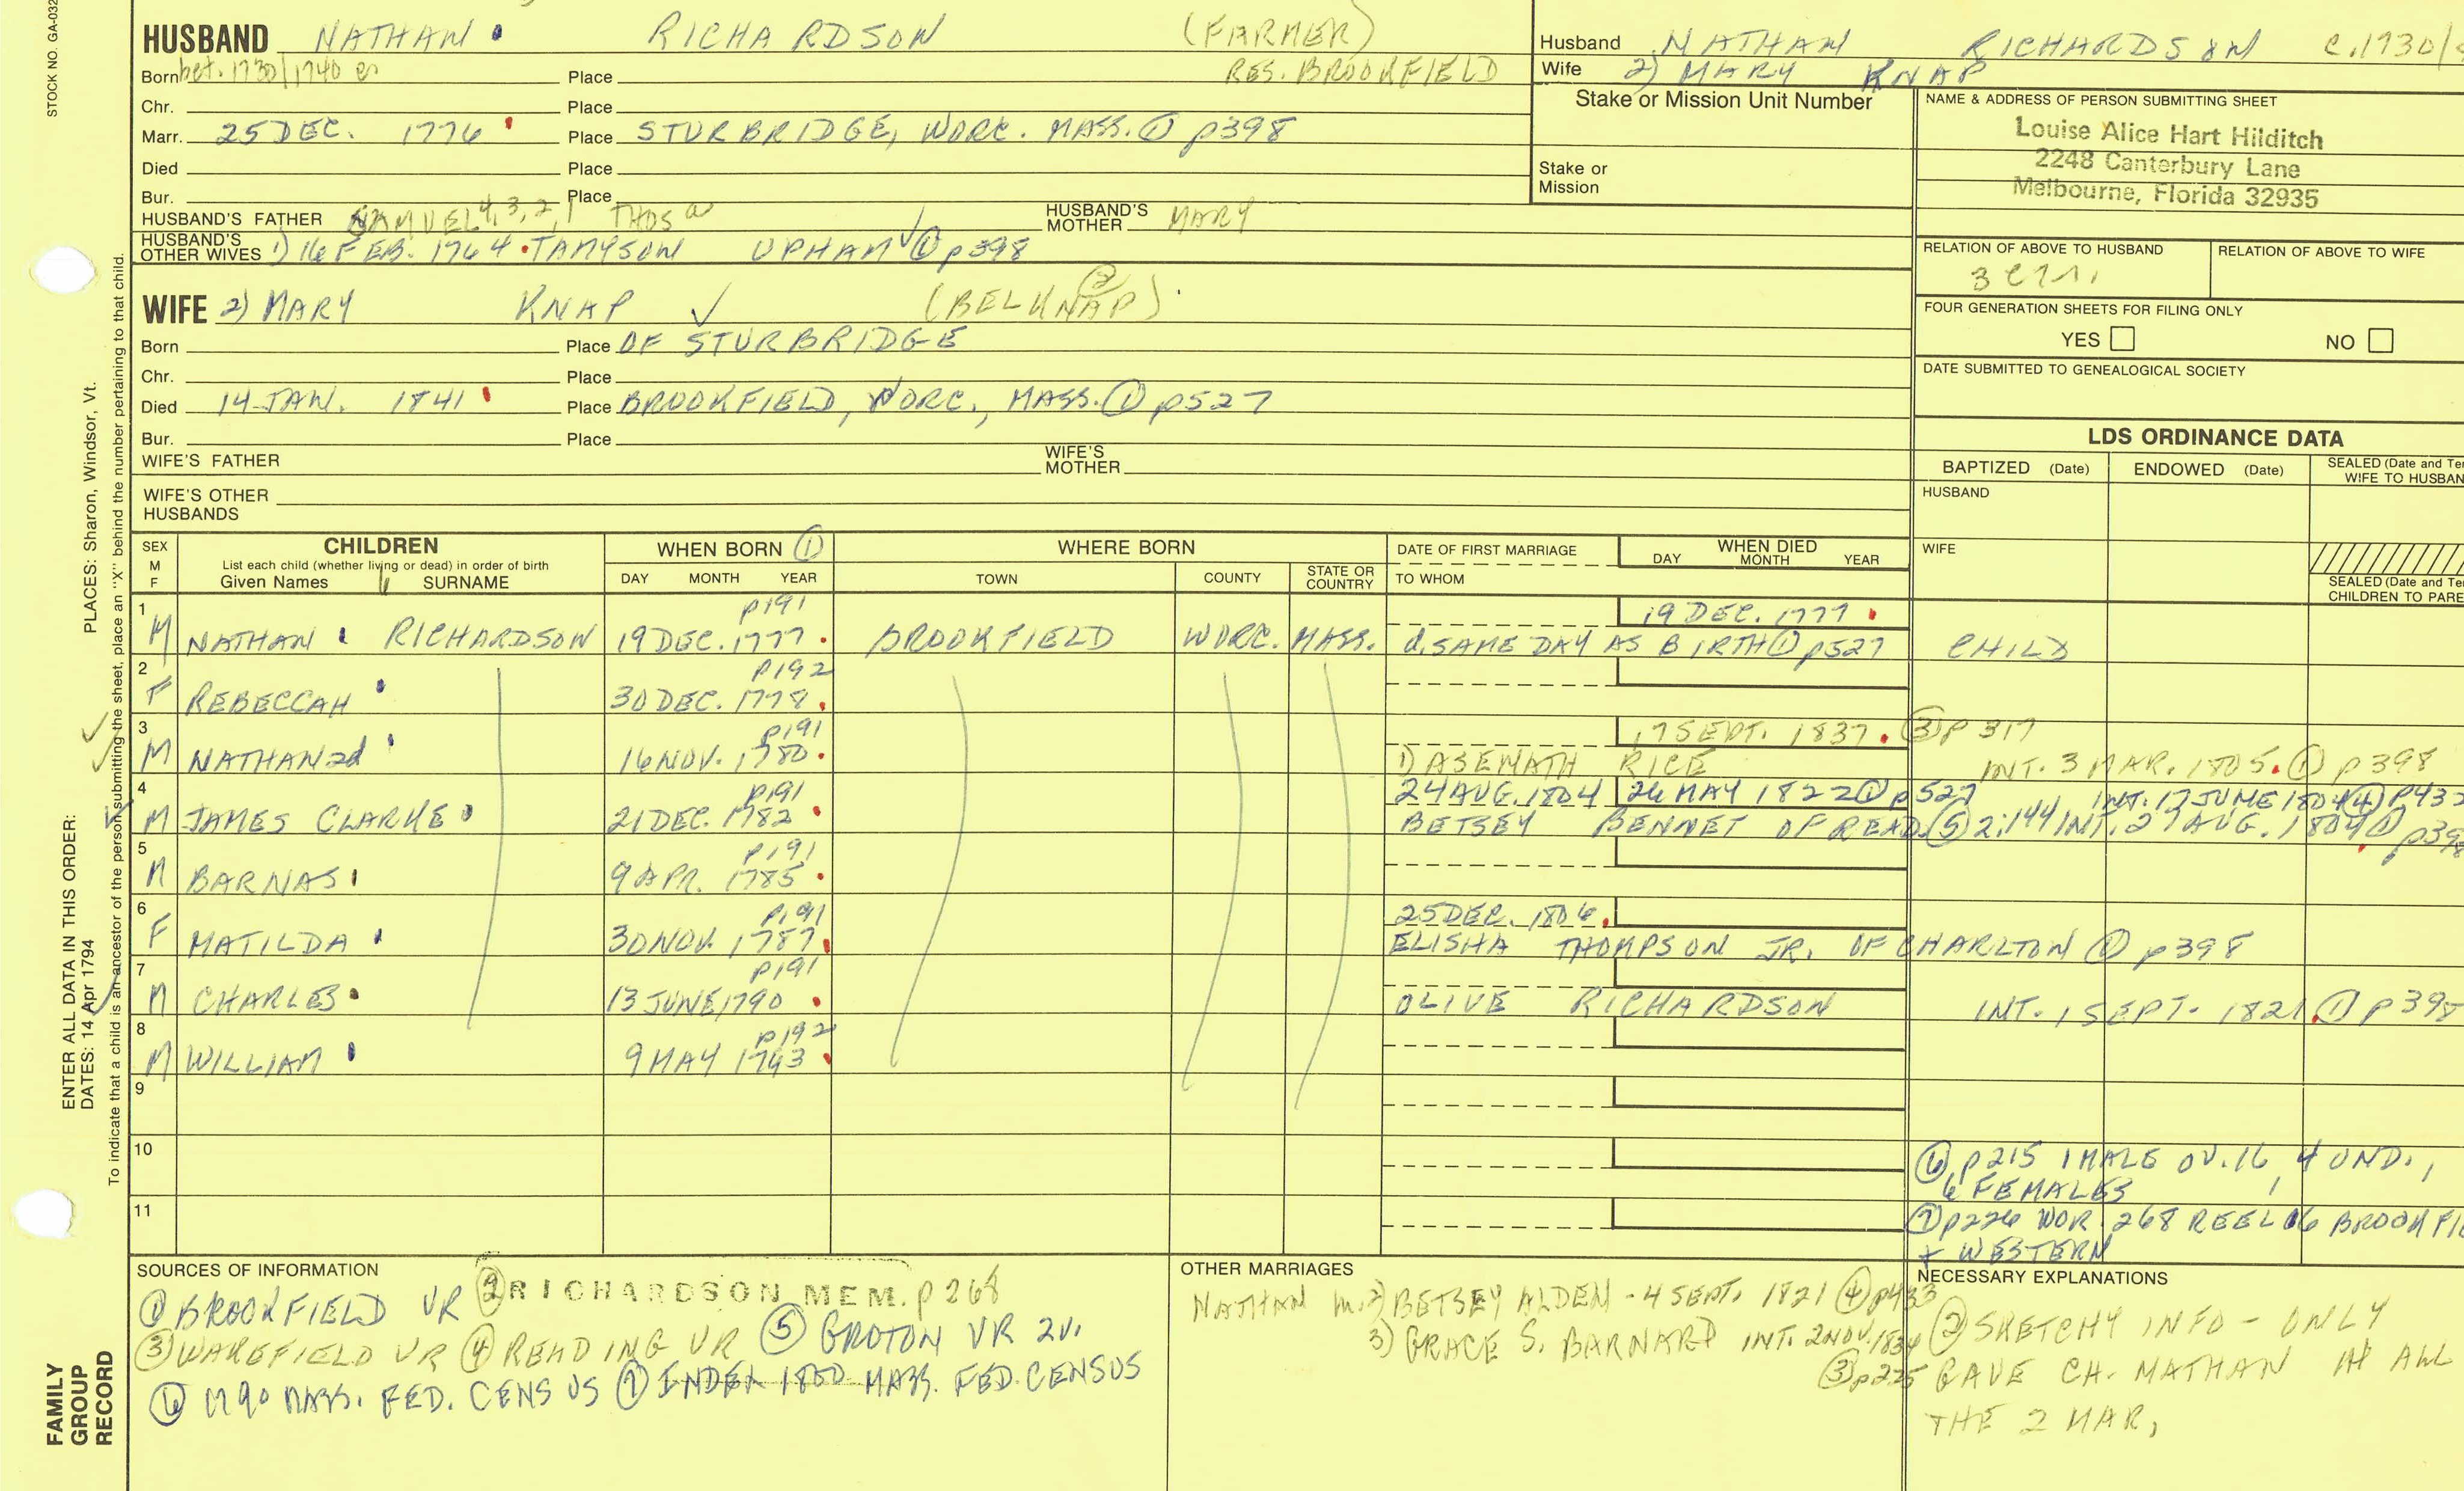 STOCK NO. GA-032
HUSBAND NATHAN RICHARDSON (FARMER)
Born bet. 1730/1740 Place RES. BROOKFIELD
Chr. Place
Marr. 25 DEC. 1776 Place STURBRIDGE, WORC. MASS. ① p398
Died Place
Bur. Place
HUSBAND'S FATHER SAMUEL 4, 3, 2, 1 THOS HUSBAND'S MOTHER MARY
HUSBAND'S OTHER WIVES 1) 16 FEB. 1764 TAMYSON UPHAM ✓ ① p398
WIFE 2) MARY KNAP ✓ (BELKNAP)
Born Place OF STURBRIDGE
Chr. Place
Died 14 JAN. 1841 Place BROOKFIELD, WORC., MASS. ① p527
Bur. Place
WIFE'S FATHER WIFE'S MOTHER
WIFE'S OTHER HUSBANDS
Husband NATHAN RICHARDSON c.1730/
Wife 2) MARY KNAP
Stake or Mission Unit Number
Stake or Mission
NAME & ADDRESS OF PERSON SUBMITTING SHEET
Louise Alice Hart Hilditch
2248 Canterbury Lane
Melbourne, Florida 32935
RELATION OF ABOVE TO HUSBAND RELATION OF ABOVE TO WIFE
FOUR GENERATION SHEETS FOR FILING ONLY
YES NO
DATE SUBMITTED TO GENEALOGICAL SOCIETY
LDS ORDINANCE DATA
BAPTIZED (Date) ENDOWED (Date) SEALED (Date and Te
WIFE TO HUSBAN
HUSBAND
WIFE
SEALED (Date and Te
CHILDREN TO PARE
SEX M F
CHILDREN
List each child (whether living or dead) in order of birth
Given Names SURNAME
WHEN BORN ①
DAY MONTH YEAR
WHERE BORN
TOWN COUNTY STATE OR COUNTRY
DATE OF FIRST MARRIAGE
TO WHOM
WHEN DIED
DAY MONTH YEAR
1 p191 19 DEC. 1777
M NATHAN RICHARDSON 19 DEC. 1777 BROOKFIELD WORC. MASS. d. SAME DAY AS BIRTH ① p527 CHILD
2 p192
F REBECCAH 30 DEC. 1778
3 p191 17 SEPT. 1837 ③ p317
M NATHAN 2d 16 NOV. 1780 1) ASENATH RICE INT. 3 MAR. 1805 ① p398
4 p191 24 AUG. 1804 26 MAY 1822 ① p527 INT. 17 JUNE 1804 ④ p432
M JAMES CLARKE 21 DEC. 1782 BETSEY BENNET OF READ. ⑤ 2:144 INT. 27 AUG. 1804 ① p398
5 p191
M BARNAS 9 APR. 1785
6 p191 25 DEC. 1806
F MATILDA 30 NOV. 1787 ELISHA THOMPSON JR. OF CHARLTON ① p398
7 p191
M CHARLES 13 JUNE 1790 OLIVE RICHARDSON INT. 1 SEPT. 1821 ① p398
8 p192
M WILLIAM 9 MAY 1793
9
10
11
⑥ p215 1 MALE OV. 16, 4 UND.,
6 FEMALES
⑦ p226 WOR 268 REEL 16 BROOKFIE
+ WESTERN
SOURCES OF INFORMATION
① BROOKFIELD VR ② RICHARDSON MEM. p268
③ WAKEFIELD VR ④ READING VR ⑤ GROTON VR 2v.
⑥ 1790 MASS. FED. CENSUS ⑦ INDEX 1800 MASS. FED. CENSUS
OTHER MARRIAGES
NATHAN m. 2) BETSEY ALDEN - 4 SEPT. 1821 ④ p433
3) GRACE S. BARNARD INT. 2 NOV. 1834
③ p225
NECESSARY EXPLANATIONS
② SKETCHY INFO - ONLY
GAVE CH. NATHAN ALL
THE 2 MAR,
PLACES: Sharon, Windsor, Vt.
ENTER ALL DATA IN THIS ORDER:
DATES: 14 Apr 1794
To indicate that a child is an ancestor of the person submitting the sheet, place an "X" behind the number pertaining to that child.
FAMILY GROUP RECORD